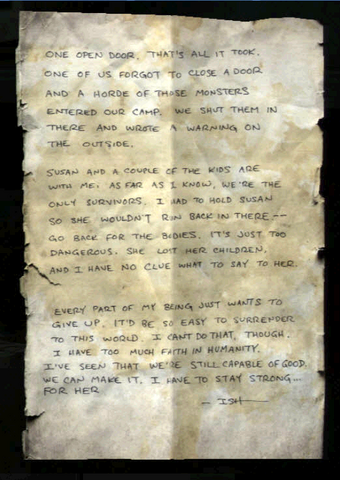 ONE OPEN DOOR, THAT'S ALL IT TOOK.
ONE OF US FORGOT TO CLOSE A DOOR
AND A HORDE OF THOSE MONSTERS
ENTERED OUR CAMP. WE SHUT THEM IN
THERE AND WROTE A WARNING ON
THE OUTSIDE.
SUSAN AND A COUPLE OF THE KIDS ARE
WITH ME. AS FAR AS I KNOW, WE'RE THE
ONLY SURVIVORS. I HAD TO HOLD SUSAN
SO SHE WOULDN'T RUN BACK IN THERE --
GO BACK FOR THE BODIES. IT'S JUST TOO
DANGEROUS. SHE LOST HER CHILDREN.
AND I HAVE NO CLUE WHAT TO SAY TO HER.
EVERY PART OF MY BEING JUST WANTS TO
GIVE UP. IT'D BE SO EASY TO SURRENDER
TO THIS WORLD. I CAN'T DO THAT, THOUGH.
I HAVE TOO MUCH FAITH IN HUMANITY.
I'VE SEEN THAT WE'RE STILL CAPABLE OF GOOD.
WE CAN MAKE IT. I HAVE TO STAY STRONG...
FOR HER
- ISH